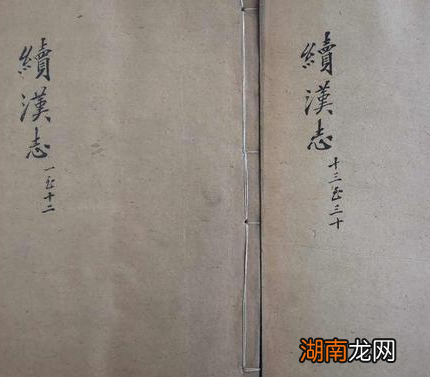 續漢志
一至十二
續漢志
十三至三十
湖南龙网